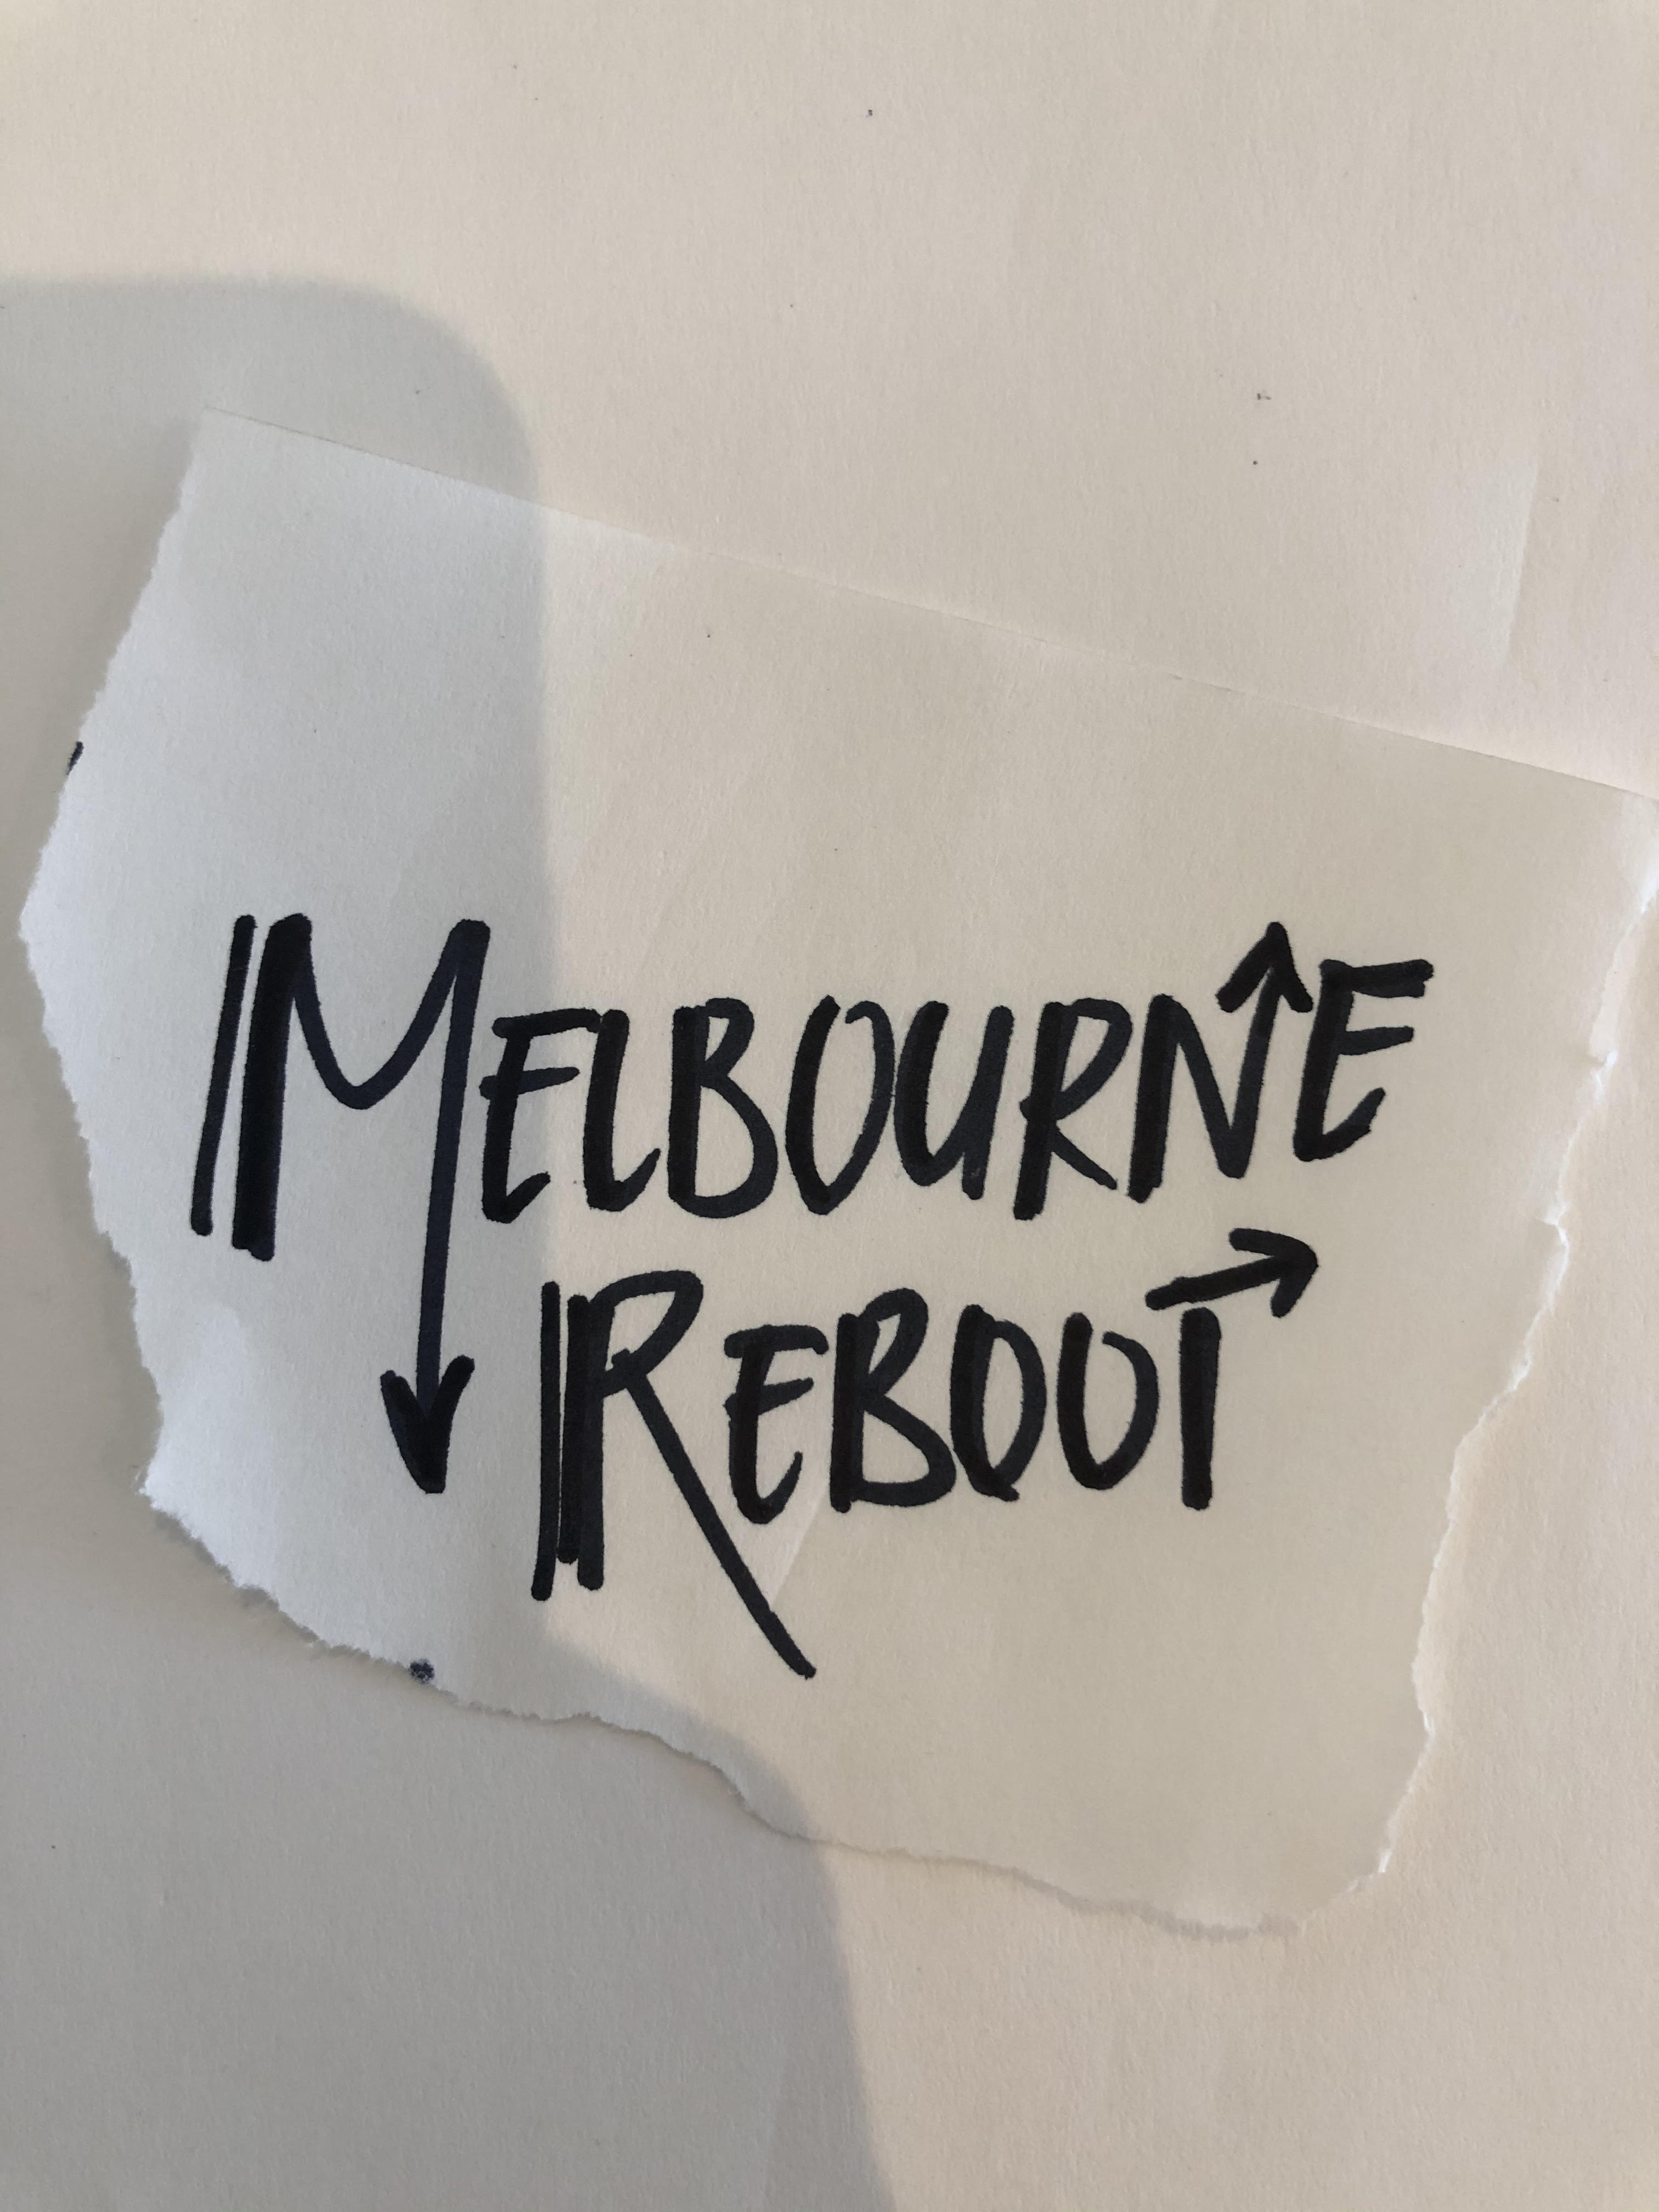 MELBOURNE
REBOOT